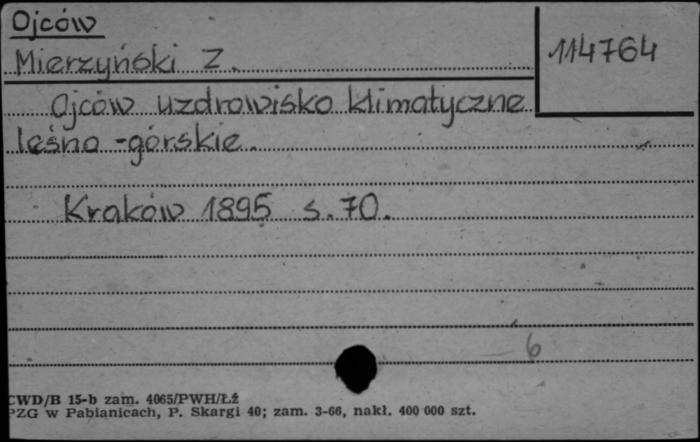 Ojców
114764
Mierzyński Z.
Ojców uzdrowisko klimatyczne
leśno-górskie.
Kraków 1895 s. 70.
6
CWD/B 15-b zam. 4065/PWH/Łź
PZG w Pabianicach, P. Skargi 40; zam. 3-66, nakł. 400 000 szt.